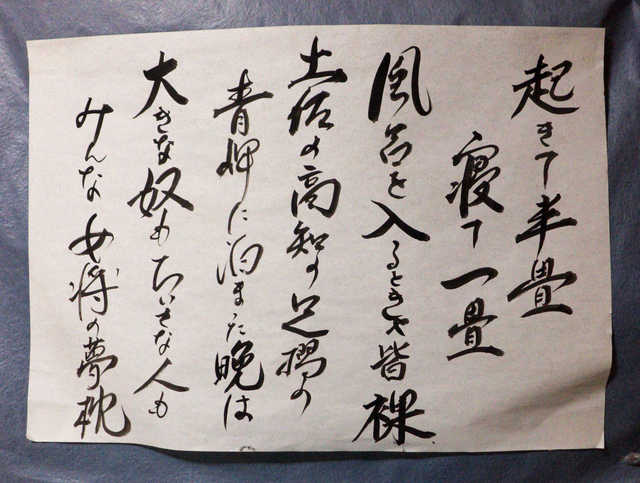 起きて半畳
寝て一畳
風呂を入るときは皆裸
土佐の高知の足摺の
青岬に泊まった晩は
大きな奴もちいさな人も
みんな女将の夢枕